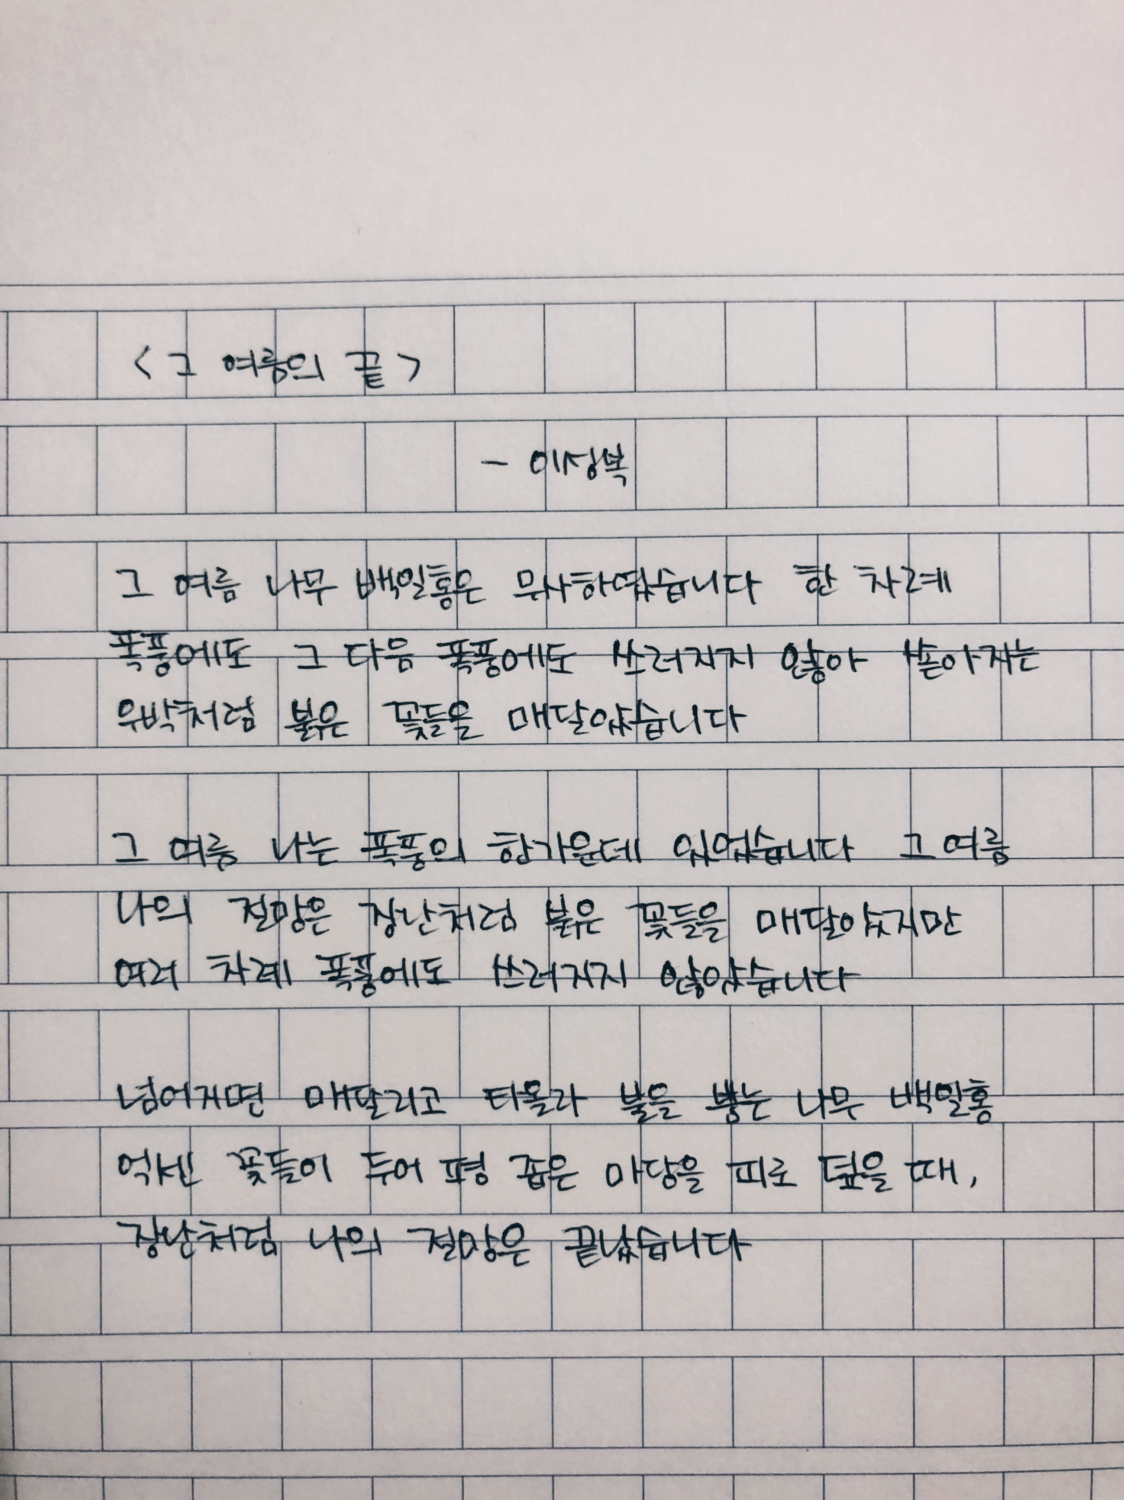 <그 여름의 끝>
- 이성복
그 여름 나무 백일홍은 무사하였습니다 한 차례
폭풍에도 그 다음 폭풍에도 쓰러지지 않아 쏟아지는
우박처럼 붉은 꽃들을 매달았습니다
그 여름 나는 폭풍의 한가운데 있었습니다 그 여름
나의 절망은 장난처럼 붉은 꽃들을 매달았지만
여러 차례 폭풍에도 쓰러지지 않았습니다
넘어지면 매달리고 타올라 불을 뿜는 나무 백일홍
억센 꽃들이 두어 평 좁은 마당을 피로 덮을 때,
장난처럼 나의 절망은 끝났습니다